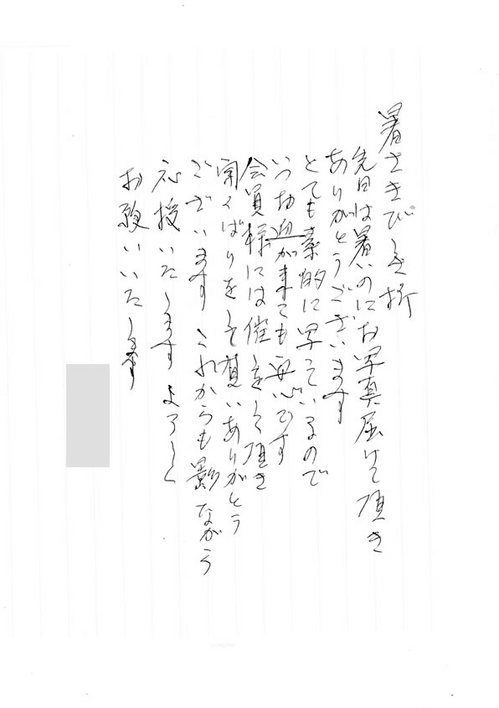 暑さきびしき折
先日は暑いのにお写真届けて頂き
ありがとうございます
とても素的に写っているので
いつお迎がまても安心です
会員様には催をして頂き
開くばりをして頂いありがとう
ございます これからも影ながら
応援いたします よろしく
お願いいたします